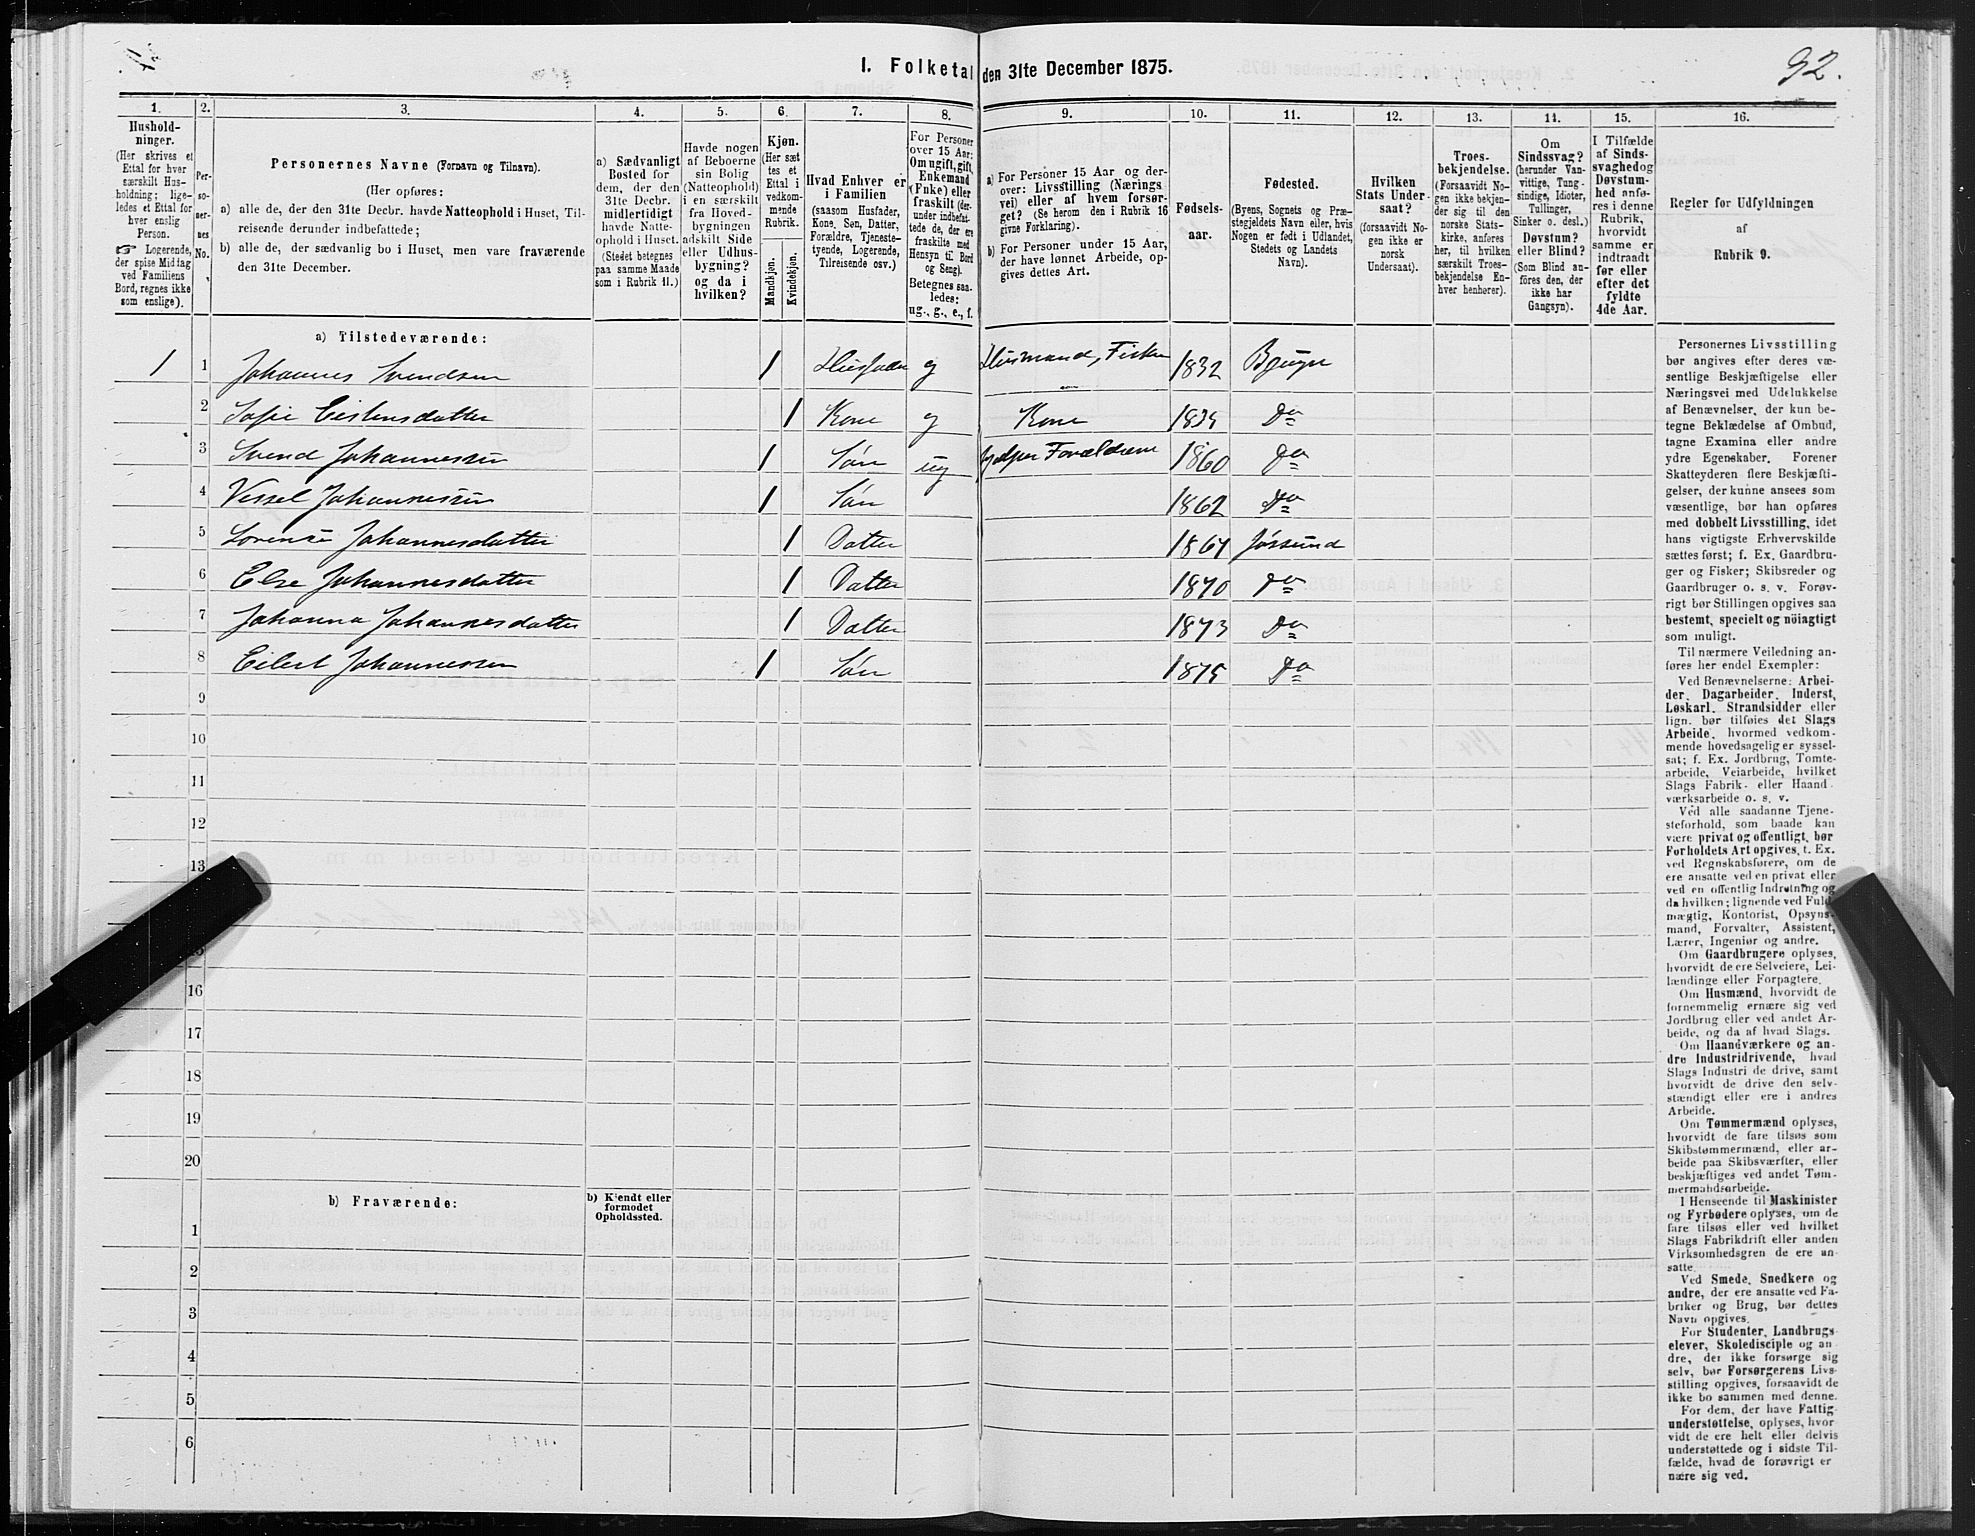 1. Folketal den 31te December 1875.
92.
1.
2.
3.
4.
5.
6.
7.
8.
9.
10.
11.
12.
13.
14.
15.
16.
Hushold-
ninger.
(Her skrives et
Ettal for hver
særskilt Hus-
holdning; lige-
ledes et Ettal for
hver enslig
Person.
☞ Logerende,
der spise Middag
ved Familiens
Bord, regnes ikke
som enslige).
Per-
so-
ner-
nes
No.
Personernes Navne (Fornavn og Tilnavn).
(Her opføres:
a) alle de, der den 31te Decbr. havde Natteophold i Huset, Til-
reisende derunder indbefattede;
b) alle de, der sædvanlig bo i Huset, men vare fraværende
den 31te December.
a) Sædvanligt
Bosted for
dem, der den
31te Decbr.
midlertidigt
havde Natte-
ophold i Huset.
(Stedet betegnes
paa samme Maade
som i Rubrik 11.)
Havde nogen
af Beboerne
sin Bolig
(Natteophold)
i en særskilt
fra Hoved-
bygningen
adskilt Side
eller Udhus-
bygning?
og da i
hvilken?
Kjøn.
(Her sæt
tes et
Ettal i
vedkom-
mende
Rubrik.
Mandkjøn.
Kvindekjøn.
Hvad Enhver er
i Familien
(saasom Husfader,
Kone, Søn, Datter,
Forældre, Tjeneste-
tyende, Logerende,
Tilreisende osv.)
For Personer
over 15 Aar:
Om ugift, gift,
Enkemand
(Enke) eller
fraskilt (der-
under indbefat-
tede de, der ere
fraskilte med
Hensyn til Bord
og Seng).
Betegnes saa-
ledes:
ug., g., e., f.
a) For Personer 15 Aar og der-
over: Livsstilling (Nærings
vei) eller af hvem forsør-
get? (Se herom den i Rubrik 16
givne Forklaring).
b) For Personer under 15 Aar,
der have lønnet Arbeide, op-
gives dettes Art.
Fødsels-
aar.
Fødested.
(Byens, Sognets og Præ-
stegjeldets Navn eller, hvis
Nogen er født i Udlandet,
Stedets og Landets
Navn).
Hvilken
Stats Under-
saat?
(forsaavidt No-
gen ikke er
norsk
Undersaat).
Troes-
bekjendelse.
(Forsaavidt No-
gen ikke bekjen-
der sig til den
norske Stats-
kirke, anføres
her, til hvilken
særskilt Troes-
bekjendelse En-
hver henhører).
Om
Sindssvag?
(herunder Van-
vittige, Tung-
sindige, Idioter,
Tullinger,
Sinker o. desl.)
Døvstum?
eller Blind?
(Som Blind an-
føres den, der
ikke har
Gangsyn).
I Tilfælde
af Sinds-
svaghed og
Døvstum-
hed anfø-
res i denne
Rubrik,
hvorvidt
samme er
indtraadt
før eller
efter det
fyldte
4de Aar.
Regler for Udfyldningen
af
Rubrik 9.
a) Tilstedeværende:
1 1 Johannes Svendsen 1 Husfader g Husmand, Fisker 1832 Bjugn
2 Sofie Eistensdatter 1 Kone g Kone 1835 Do
3 Svend Johannessen 1 Søn ug hjelper Forældrene 1860 Do
4 Vessel Johannessen 1 Søn 1862 Do
5 Lorense Johannesdatter 1 Datter 1867 Jøssund
6 Else Johannesdatter 1 Datter 1870 Do
7 Johanna Johannesdatter 1 Datter 1873 Do
8 Eilert Johannessen 1 Søn 1875 Do
9
10
11
12
13
15
16
17
18
19
20
b) Fraværende:
b) Kjendt eller
formodet
Opholdssted.
1
2
3
4
5
6
Personernes Livsstilling
bør angives efter deres væ-
sentlige Beskjæftigelse eller
Næringsvei med Udelukkelse
af Benævnelser, der kun be-
tegne Beklædelse af Ombud,
tagne Examina eller andre
ydre Egenskaber. Forener
Skatteyderen flere Beskjæfti-
gelser, der kunne ansees som
væsentlige, bør han opføres
med dobbelt Livsstilling, idet
hans vigtigste Erhvervskilde
sættes først; f. Ex. Gaardbru-
ger og Fisker; Skibsreder og
Gaardbruger o. s. v. Forøv-
rigt bør Stillingen opgives saa
bestemt, specielt og nöiagtigt
som muligt.
Til nærmere Veiledning an-
føres her endel Exempler:
Ved Benævnelserne: Arbei-
der, Dagarbeider, Inderst,
Løskarl, Strandsidder eller
lign. bør tilføies det Slags
Arbeide, hvormed vedkom-
mende hovedsagelig er syssel-
sat; f. Ex. Jordbrug, Tomte-
arbeide, Veiarbeide, hvilket
Slags Fabrik- eller Haand
værksarbeide o. s. v.
Ved alle saadanne Tjene-
steforhold, som baade kan
være privat og offentligt, bør
Forholdets Art opgives, f. Ex.
ved Regnskabsførere, om de
ere ansatte ved en privat eller
ved en offentlig Indretning og
da hvilken; lignende ved Fuld-
mægtig, Kontorist, Opsyns-
mand, Forvalter, Assistent,
Lærer, Ingeniør og andre.
Om Gaardbrugere oplyses,
hvorvidt de ere Selveiere, Lei-
lændinge eller Forpagtere.
Om Husmænd, hvorvidt de
fornemmelig ernære sig ved
Jordbrug eller ved andet Ar-
beide, og da af hvad Slags.
Om Haandværkere og an-
dre Industridrivende, hvad
Slags Industri de drive, samt
hvorvidt de drive den selv-
stændigt eller ere i andres
Arbeide.
Om Tømmermænd oplyses,
hvorvidt de fare tilsøs som
Skibstømmermænd, eller ar-
beide paa Skibsværfter, eller
beskjæftiges ved andet Tøm-
mermandsarbeide.
I Henseende til Maskinister
og Fyrbødere oplyses, om de
fare tilsøs eller ved hvilket
Slags Fabrikdrift eller anden
Virksomhedsgren de ere an-
satte.
Ved Smede, Snedkere og
andre, der ere ansatte ved Fa-
briker og Brug, bør dettes
Navn opgives.
For Studenter, Landbrugs-
elever, Skoledisciple og an-
dre, der ikke forsørge sig
selv, bør Forsørgerens Livs-
stilling opgives, forsaavidt de
ikke bo sammen med denne.
For dem, der have Fattig-
understøttelse, oplyses, hvor
vidt de ere helt eller delvis
understøttede og i sidste Til-
fælde, hvad de forøvrigt er
nære sig ved.